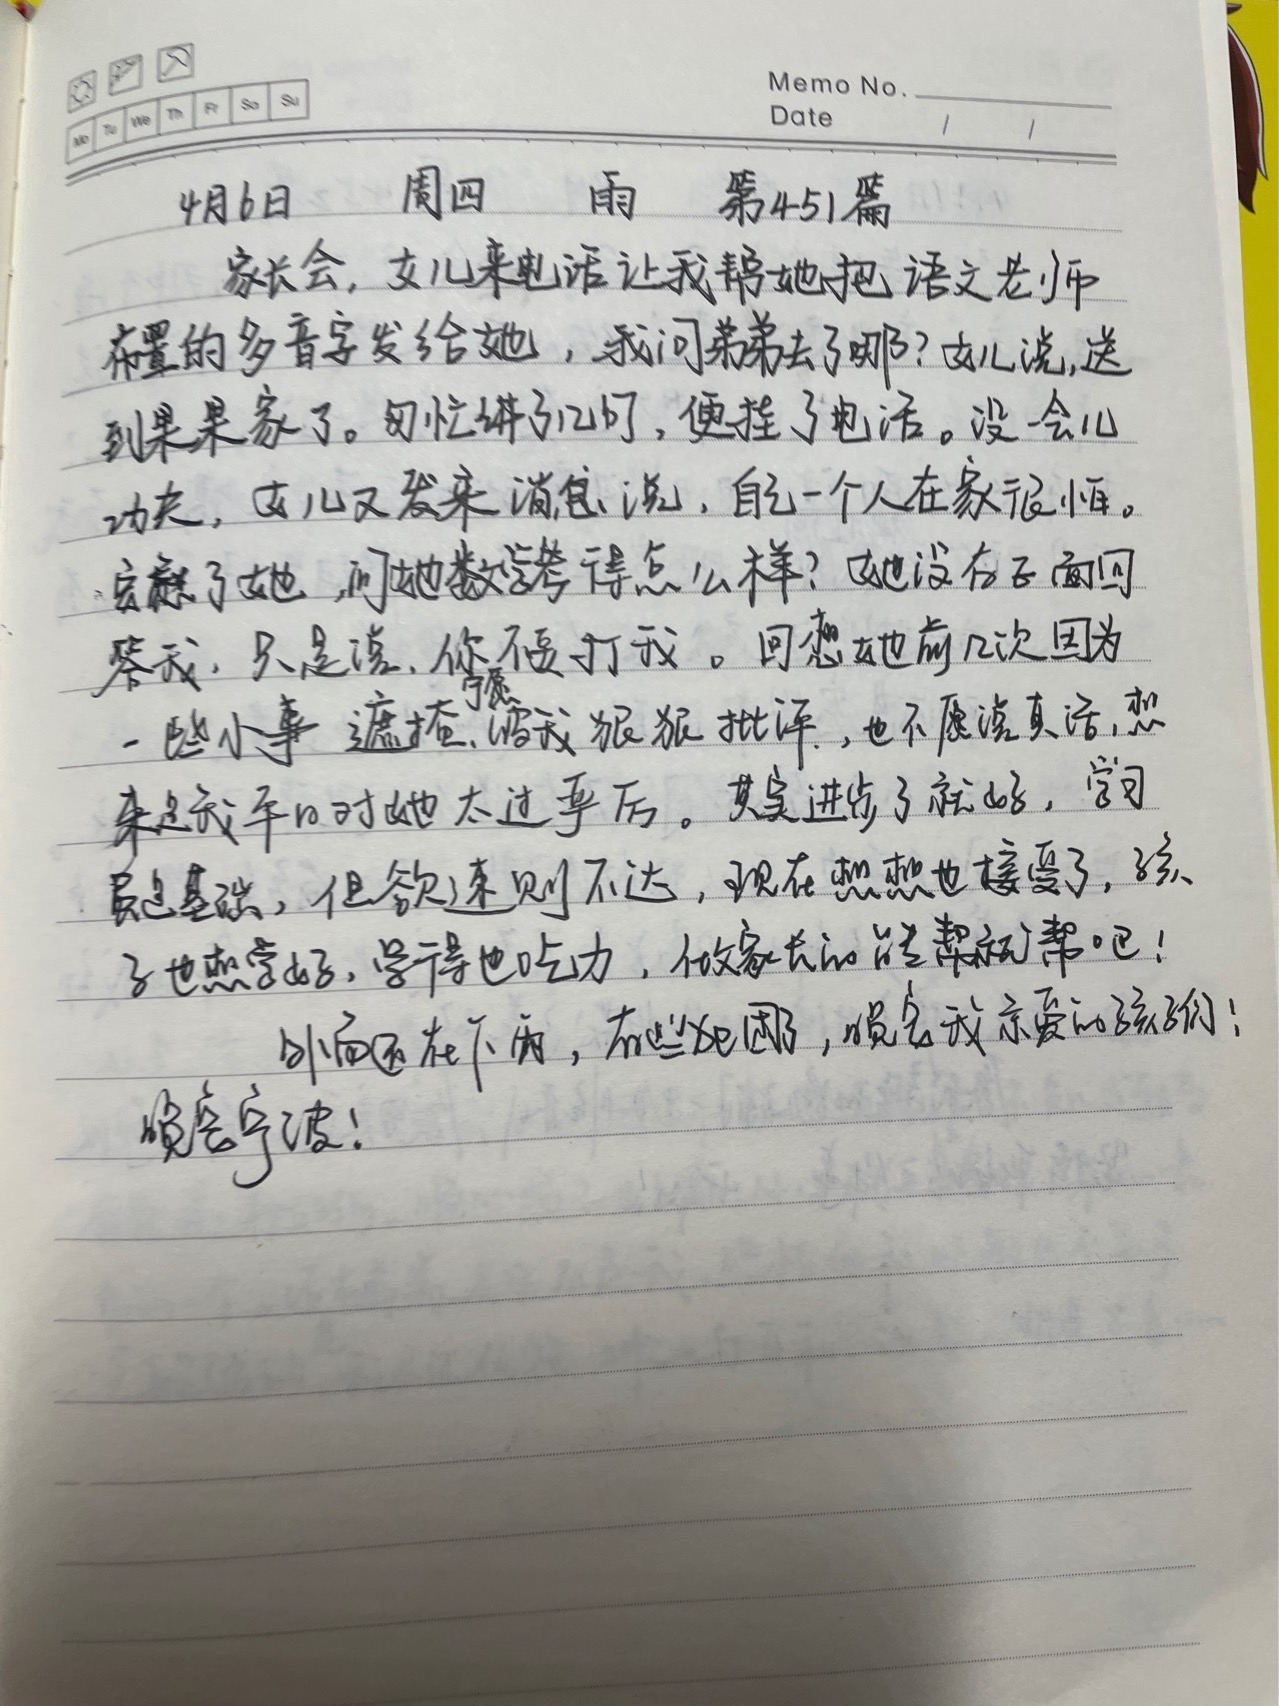 Mo Tu We Th Fr Sa Su
Memo No.
Date / /
4月6日 周四 雨 第451篇
家长会，女儿来电话让我帮她把语文老师
布置的多音字发给她，我问弟弟去了哪？女儿说，送
到果果家了。匆忙讲了几句，便挂了电话。没一会儿
功夫，女儿又发来消息说，自己一个人在家很怕。
安慰了她，问她数学考得怎么样？她没有正面回
答我，只是说，你不要打我。回想她前几次因为
一些小事遮掩、宁愿被我狠狠批评，也不愿说真话，想
来是我平日对她太过严厉。其实进步了就好，学习
是基础，但欲速则不达，现在想想也接受了，孩
子也想学好，学得也吃力，做家长的能帮就帮吧！
外面还在下雨，有些犯困了，晚安我亲爱的孩子们！
晚安宁波！